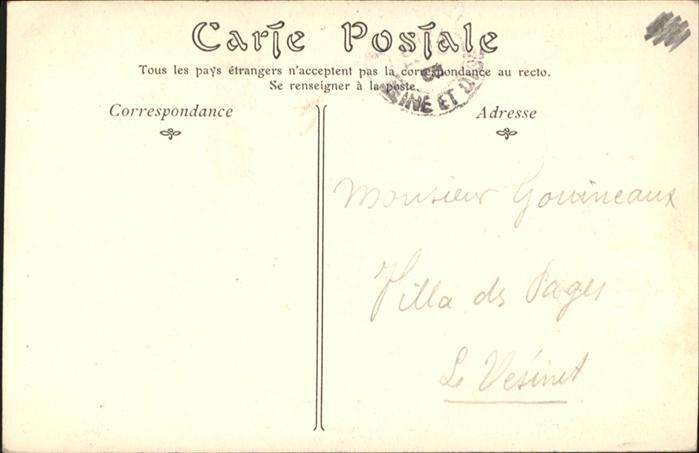 Carte Postale
Tous les pays étrangers n'acceptent pas la correspondance au recto.
Se renseigner à la poste.
Correspondance
Adresse
INE ET
Monsieur Gouineaux
Villa des Pages
Le Vésinet